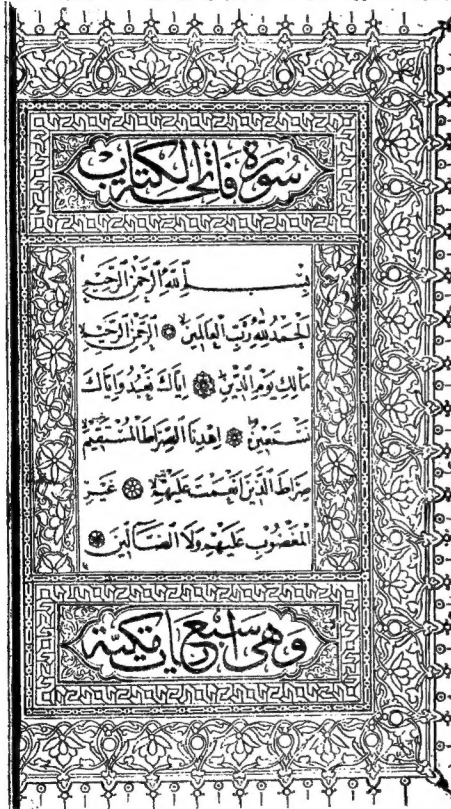 سورة فاتحة الكتاب
بِسْمِ اللهِ الرَّحْمٰنِ الرَّحِيمِ
اَلْحَمْدُ لِلّٰهِ رَبِّ الْعَالَمِينَ ۞ اَلرَّحْمٰنِ الرَّحِيمِ
مَالِكِ يَوْمِ الدِّينِ ۞ اِيَّاكَ نَعْبُدُ وَاِيَّاكَ
نَسْتَعِينُ ۞ اِهْدِنَا الصِّرَاطَ الْمُسْتَقِيمَ
صِرَاطَ الَّذِينَ اَنْعَمْتَ عَلَيْهِمْ ۞ غَيْرِ
الْمَغْضُوبِ عَلَيْهِمْ وَلَا الضَّالِّينَ ۞
وهي سبع آيات مكية